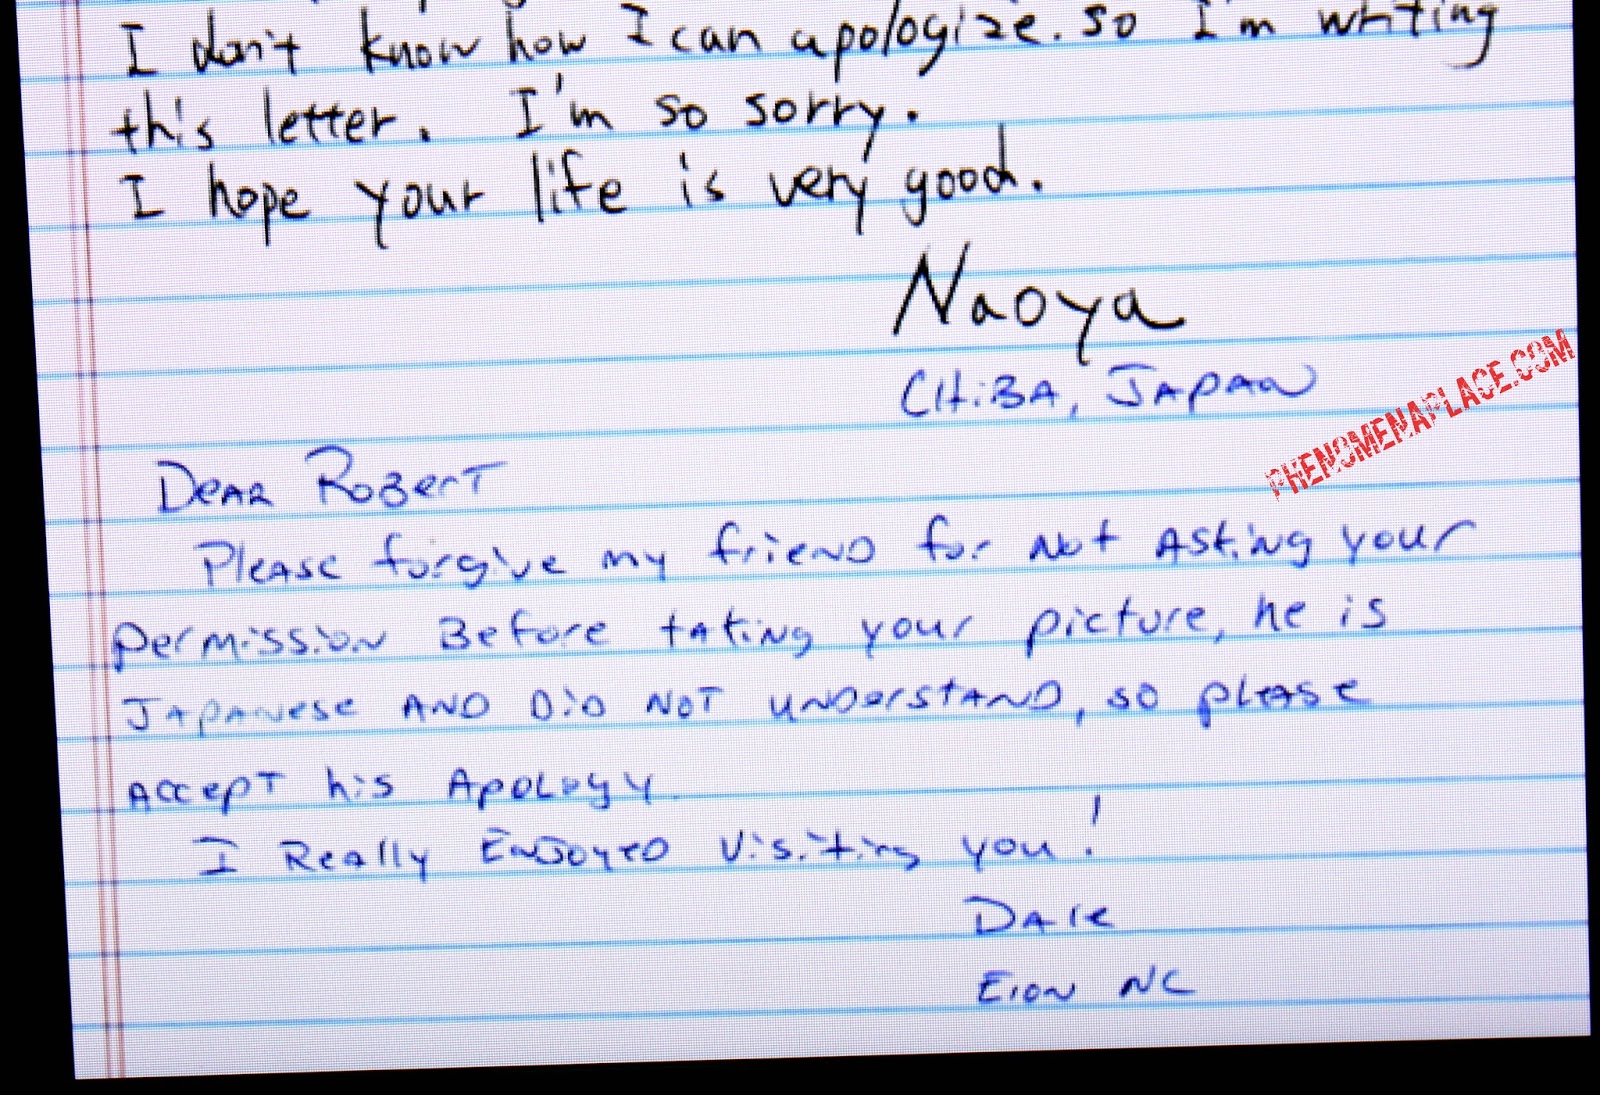 I don't know how I can apologize. so I'm writing
this letter. I'm so sorry.
I hope your life is very good.
Naoya
CHiBA, JAPAN
PHENOMENAPLACE.COM
DEAR RoBerT
PleAse forgive my frieND for Not Asking your
permission Before taking your picture, he is
JAPANese AND DiD NOT UNDerstAND, so pleAse
Accept his Apology.
I Really ENJoyeD Visiting you!
DAle
Elon NC